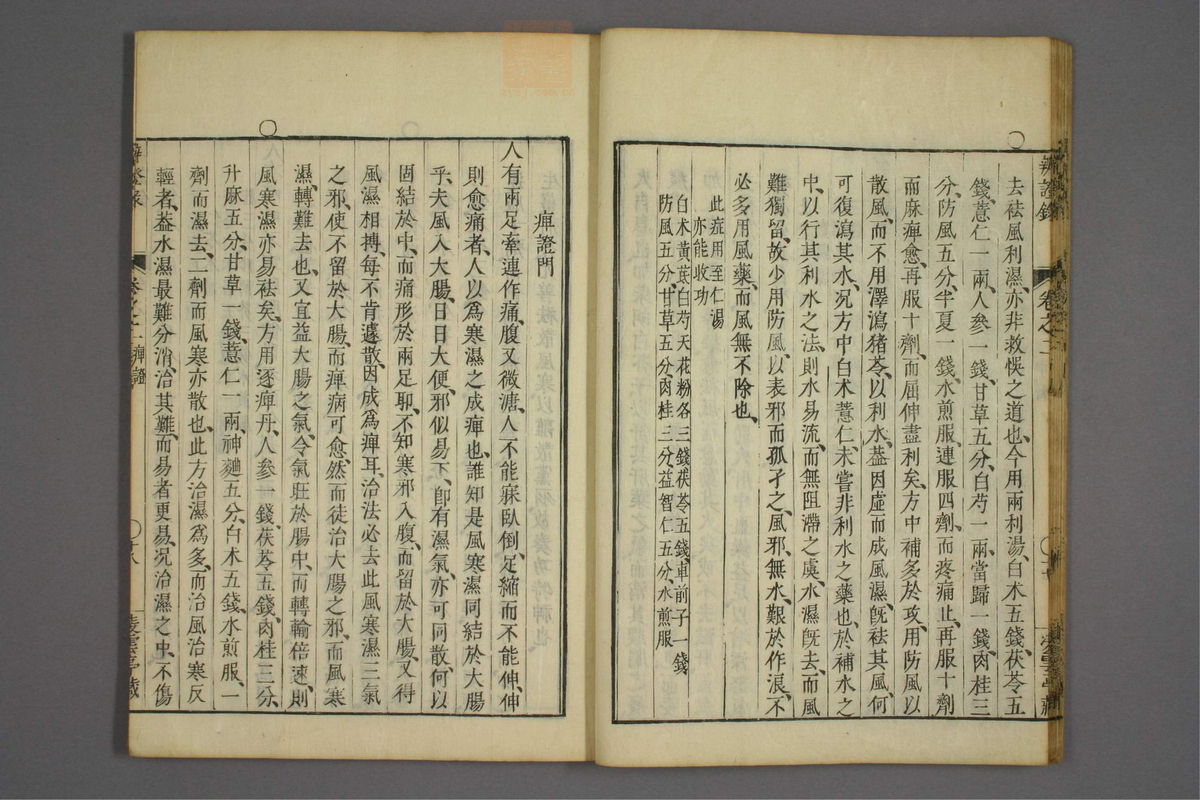 去祛風利濕、亦非救悞之道也、今用兩利湯、白术五錢、茯苓五
錢、薏仁一兩、人參一錢、甘草五分、白芍一兩、當歸一錢、肉桂三
分、防風五分、半夏一錢、水煎服、連服四劑、而疼痛止、再服十劑
而麻痺愈、再服十劑、而屈伸盡利矣、方中補多於攻、用防風以
散風、而不用澤瀉猪苓、以利水、葢因虛而成風濕、旣祛其風、何
可復瀉其水、况方中白术薏仁、未嘗非利水之藥也、於補水之
中、以行其利水之法、則水易流、而無阻滯之虞、水濕旣去、而風
難獨留、故少用防風、以表邪、而孤孑之、風邪、無水艱於作浪、不
必多用風藥、而風無不除也、
此症用至仁湯
亦能收功
白术黃茋白芍天花粉各三錢茯苓五錢、車前子一錢
防風五分、甘草五分、肉桂三分、益智仁五分、水煎服
辨證錄
卷之二
痺證門
人有兩足牽連作痛、腹又微溏、人不能寐、臥倒、足縮而不能伸、伸
則愈痛者、人以爲寒濕之成痺也、誰知是風寒濕同結於大腸
乎、夫風入大腸、日日大便、邪似易下、卽有濕氣、亦可同散、何以
固結於中、而痛形於兩足耶、不知寒邪入腹、而留於大腸、又得
風濕相搏、每不肯遽散、因成爲痺耳、治法必去此風寒濕三氣
之邪、使不留於大腸、而痺病可愈、然而徒治大腸之邪、而風寒
濕、轉難去也、又宜益大腸之氣、令氣旺於腸中、而轉輸倍速、則
風寒濕亦易祛矣、方用逐痺丹、人參一錢、茯苓五錢、肉桂三分、
升麻五分、甘草一錢、薏仁一兩、神麯五分、白术五錢、水煎服、一
劑而濕去、二劑而風寒亦散也、此方治濕爲多、而治風治寒反
輕者、葢水濕最難分消、治其難、而易者更易、况治濕之中、不傷
辨證錄
卷之二 痺證